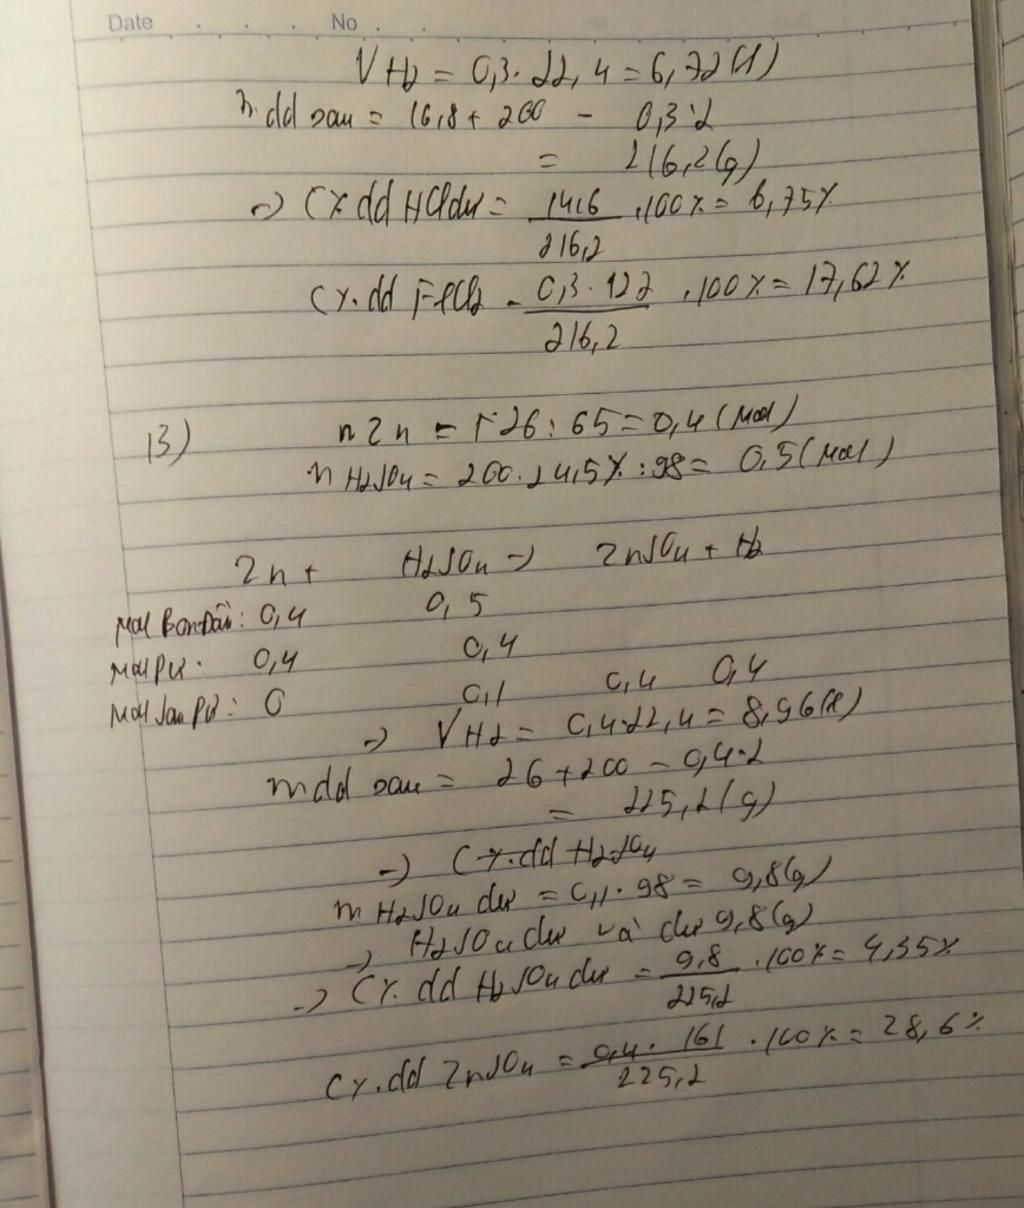 Date No
VH2 = 0,3.22,4 = 6,72(l)
m dd sau = 16,8 + 200 - 0,3.2
= 216,2(g)
=> C% dd HCl dư = 14,6/216,2 .100% = 6,75%
C%.dd FeCl2 = 0,3.127/216,2 .100% = 17,62%
13) nZn = 26:65=0,4 (mol)
nH2SO4 = 200.24,5%:98= 0,5(mol)
Zn + H2SO4 -> ZnSO4 + H2
Mol Ban Đầu: 0,4 0,5
Mol PƯ: 0,4 0,4
Mol Sau PƯ: 0 0,1 0,4 0,4
=> VH2 = 0,4.22,4 = 8,96(l)
mdd sau = 26+200 - 0,4.2
= 225,2(g)
=> C%.dd H2SO4
mH2SO4 dư = 0,1.98 = 9,8(g)
=> H2SO4 dư và dư 9,8(g)
=> C%.dd H2SO4 dư = 9,8/225,2 .100% = 4,35%
C%.dd ZnSO4 = 0,4.161/225,2 .100% = 28,6%